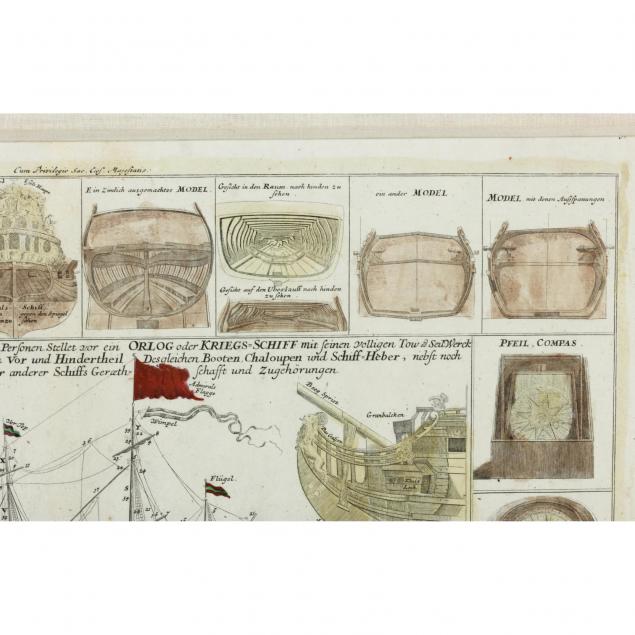 Cum Privilegio Sac. Cæs. Majestatis.
Ein Zimlich ausgemachtes MODEL.
Gesicht in den Raum nach hinden zu
sehen.
Gesicht auf den Uberlauff nach hinden
zu sehen.
ein ander MODEL
MODEL mit denen Auffspanungen
Schiff
gegen den Spiegel
sehen
Personen Stellet vor ein ORLOG oder KRIEGS-SCHIFF mit seinen völligen Tow od Seil Werck
Vor und Hindertheil Desgleichen Booten, Chaloupen und Schiff-Heber, nebst noch
anderer Schiffs Geræth- schafft und Zugehörungen.
PFEIL, COMPAS.
Admirals
Flagge
Wimpel
Flügel
Boog Spriet
Granbalcken